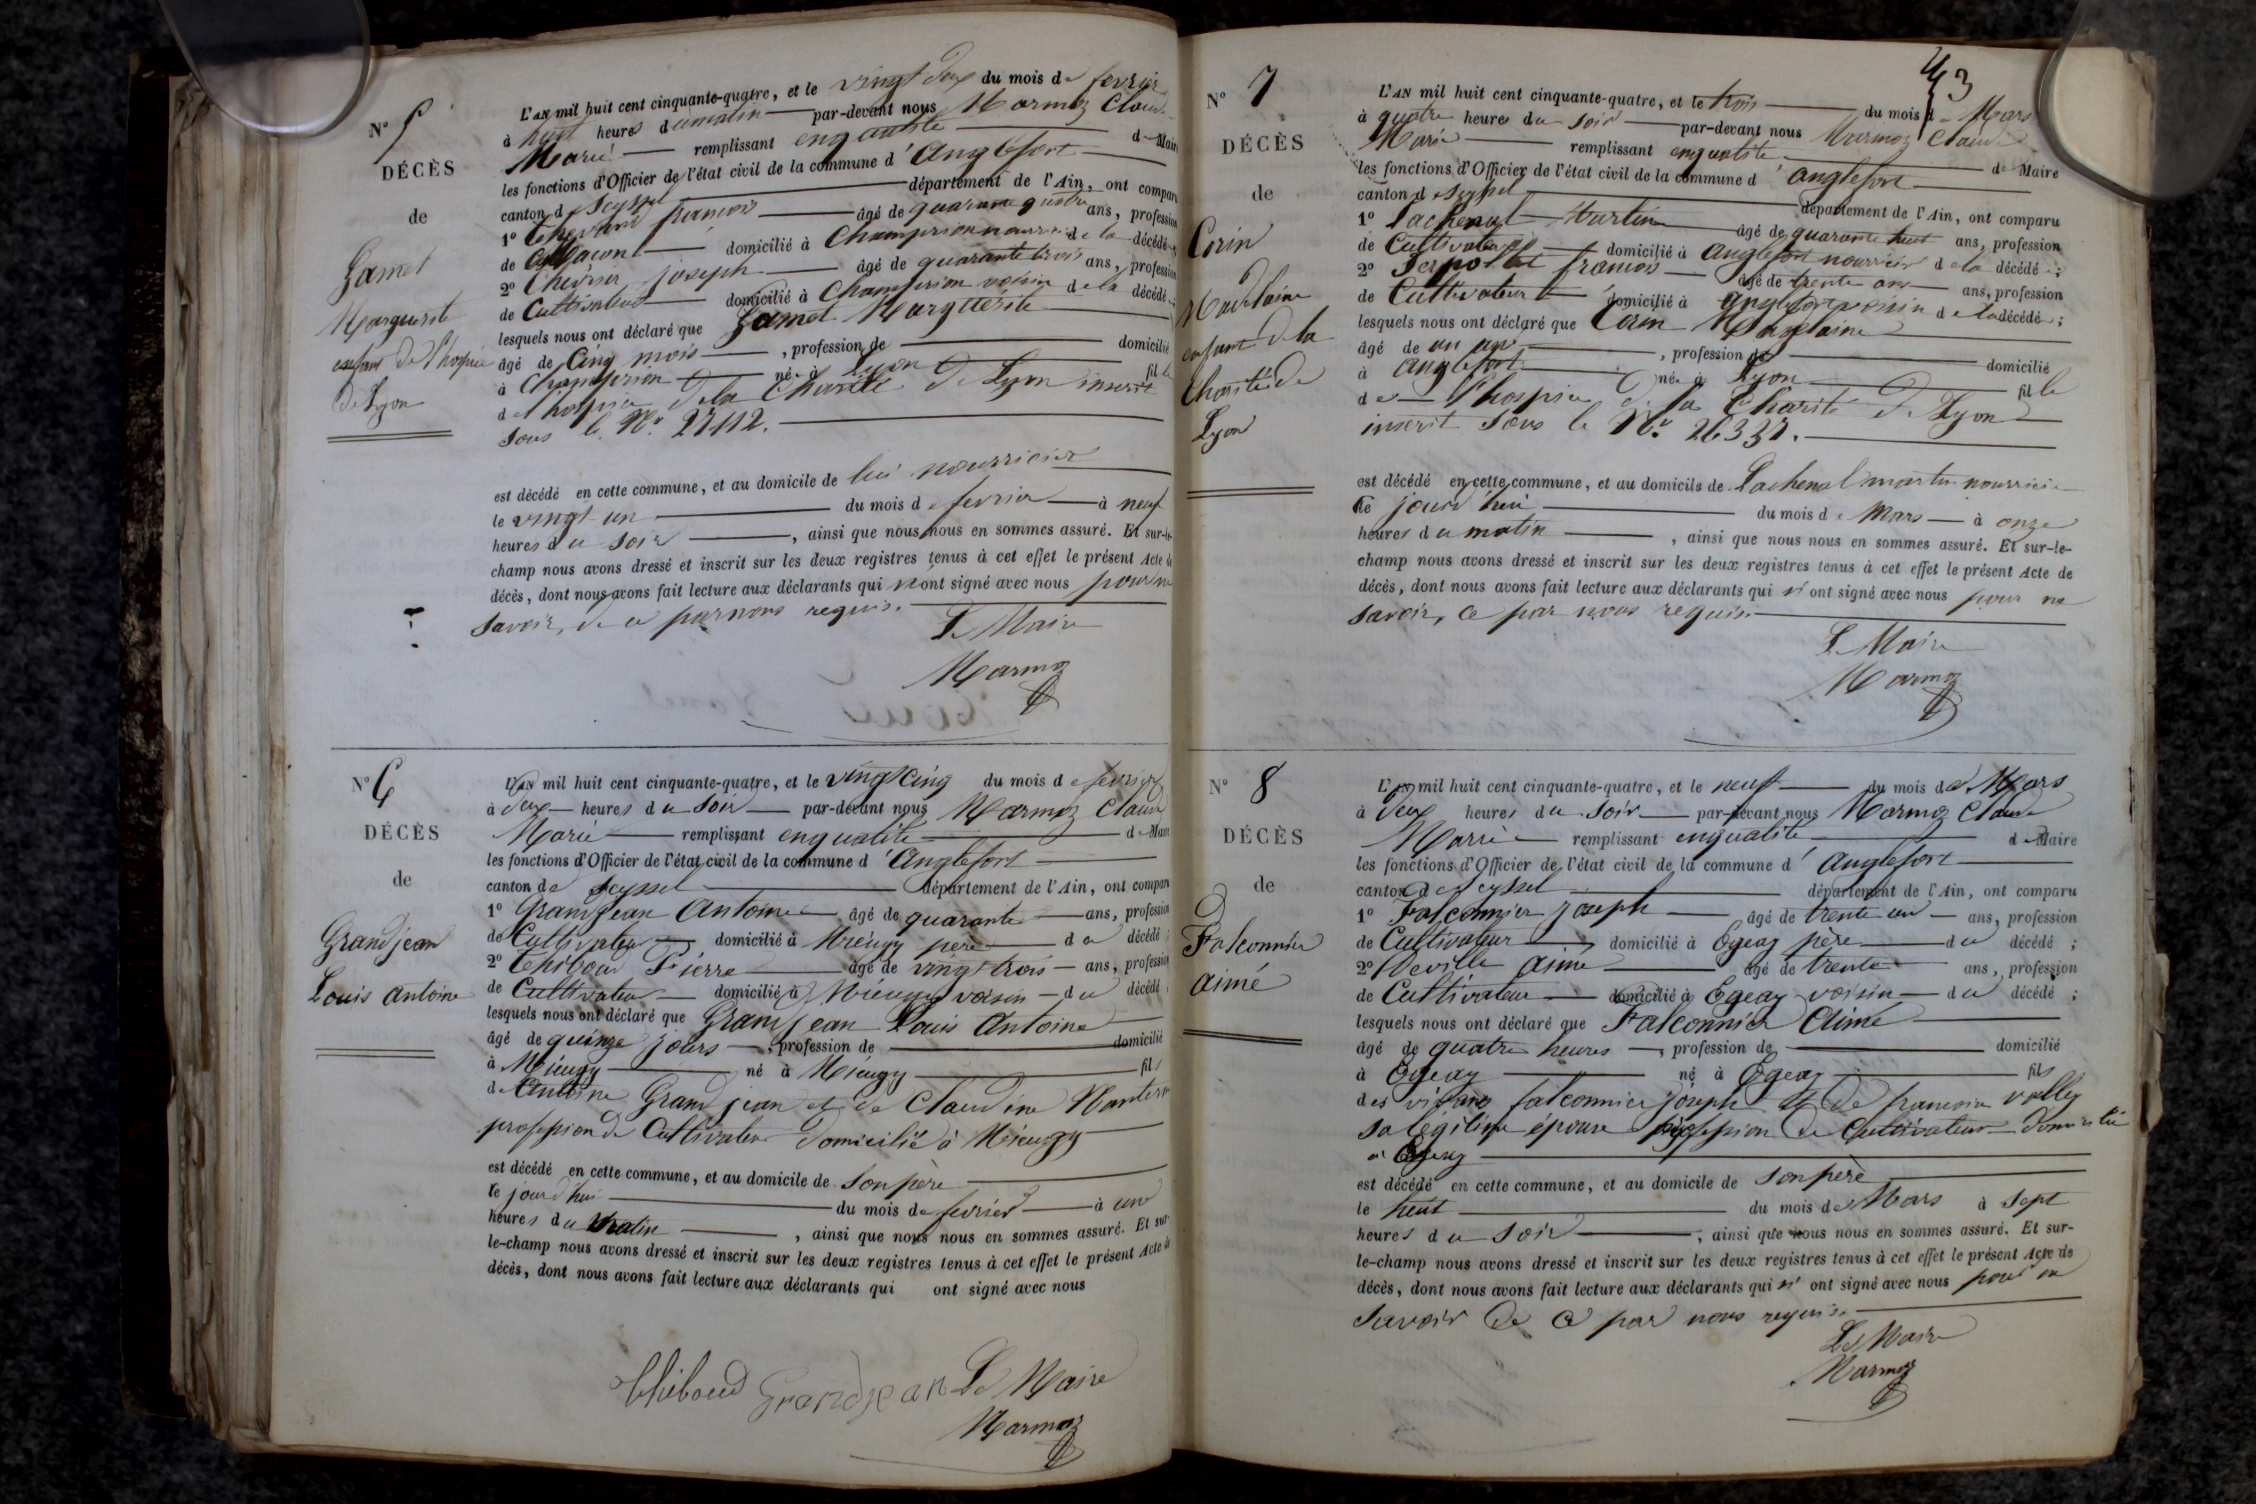 N° 5
DÉCÈS
de
Gamet
Marguerite
enfant de l'hospice
de Lyon
L'AN mil huit cent cinquante-quatre, et le vingt deux du mois de fevrier
à huit heures du matin par-devant nous Marmoz Claude
Marie remplissant en qualité de Maire
les fonctions d'Officier de l'état civil de la commune d'Anglefort
canton de Seyssel département de l'Ain, ont comparu
1° françois âgé de quarante quatre ans, profession
de domicilié à Champrion nourricier de la décédée
2° joseph âgé de quarante trois ans, profession
de Cultivateur domicilié à Champrion voisin de la décédée
lesquels nous ont déclaré que Gamet Margueritte
âgé de Cinq mois, profession de domicilié
à Champrion née à Lyon fille
de l'hospice de la Charité de Lyon inscrit
sous le N° 27112.
est décédé en cette commune, et au domicile de lui nourricier
le vingt un du mois de fevrier à neuf
heures du soir, ainsi que nous nous en sommes assuré. Et sur-le-
champ nous avons dressé et inscrit sur les deux registres tenus à cet effet le présent Acte de
décès, dont nous avons fait lecture aux déclarants qui n'ont signé avec nous pour ne
savoir, de ce par nous requis.
Le Maire
Marmoz
N° 6
DÉCÈS
de
Grandjean
Louis Antoine
L'AN mil huit cent cinquante-quatre, et le vingt cinq du mois de fevrier
à deux heures du soir par-devant nous Marmoz Claude
Marie remplissant en qualité de Maire
les fonctions d'Officier de l'état civil de la commune d'Anglefort
canton de Seyssel département de l'Ain, ont comparu
1° Grandjean Antoine âgé de quarante ans, profession
de Cultivateur domicilié à Mieugy père du décédé ;
2° Thiboud Pierre âgé de vingt trois ans, profession
de Cultivateur domicilié à Mieugy voisin du décédé ;
lesquels nous ont déclaré que Grandjean Louis Antoine
âgé de quinze jours, profession de domicilié
à Mieugy né à Mieugy fils
de Antoine Grandjean et de Claudine
profession de Cultivateur domicilié à Mieugy
est décédé en cette commune, et au domicile de son père
le jourd'hui du mois de fevrier à une
heures du matin, ainsi que nous nous en sommes assuré. Et sur-
le-champ nous avons dressé et inscrit sur les deux registres tenus à cet effet le présent Acte de
décès, dont nous avons fait lecture aux déclarants qui ont signé avec nous
Thiboud Grandjean Le Maire
Marmoz
43
N° 7
DÉCÈS
de
Corin
Madelaine
enfant de la
Charité de
Lyon
L'AN mil huit cent cinquante-quatre, et le trois du mois de Mars
à quatre heures du soir par-devant nous Marmoz Claude
Marie remplissant en qualité de Maire
les fonctions d'Officier de l'état civil de la commune d'Anglefort
canton de Seyssel département de l'Ain, ont comparu
1° Lachenal Martin âgé de quarante huit ans, profession
de Cultivateur domicilié à Anglefort nourricier de la décédée ;
2° Serpollet françois âgé de trente ans, profession
de Cultivateur domicilié à Anglefort voisin de la décédée ;
lesquels nous ont déclaré que Corin Madelaine
âgé de un an, profession de domicilié
à Anglefort née à Lyon fille
de l'hospice de la Charité de Lyon
inscrit sous le N° 26337.
est décédé en cette commune, et au domicile de Lachenal martin nourricier
le jourd'hui du mois de Mars à onze
heures du matin, ainsi que nous nous en sommes assuré. Et sur-le-
champ nous avons dressé et inscrit sur les deux registres tenus à cet effet le présent Acte de
décès, dont nous avons fait lecture aux déclarants qui n'ont signé avec nous pour ne
savoir, ce par nous requis.
Le Maire
Marmoz
N° 8
DÉCÈS
de
Falconnier
aimé
L'AN mil huit cent cinquante-quatre, et le neuf du mois de Mars
à deux heures du soir par-devant nous Marmoz Claude
Marie remplissant en qualité de Maire
les fonctions d'Officier de l'état civil de la commune d'Anglefort
canton de Seyssel département de l'Ain, ont comparu
1° Falconnier joseph âgé de trente un ans, profession
de Cultivateur domicilié à Ogeay père du décédé ;
2° Deville Aimé âgé de trente ans, profession
de Cultivateur domicilié à Ogeay voisin du décédé ;
lesquels nous ont déclaré que Falconnier Aimé
âgé de quatre heures, profession de domicilié
à Ogeay né à Ogeay fils
des falconnier joseph et de françoise
sa legitime épouse profession de Cultivateur domicilié
à Ogeay
est décédé en cette commune, et au domicile de son père
le huit du mois de Mars à sept
heures du soir, ainsi que nous nous en sommes assuré. Et sur-
le-champ nous avons dressé et inscrit sur les deux registres tenus à cet effet le présent Acte de
décès, dont nous avons fait lecture aux déclarants qui n'ont signé avec nous pour ne
savoir de ce par nous requis.
Le Maire
Marmoz